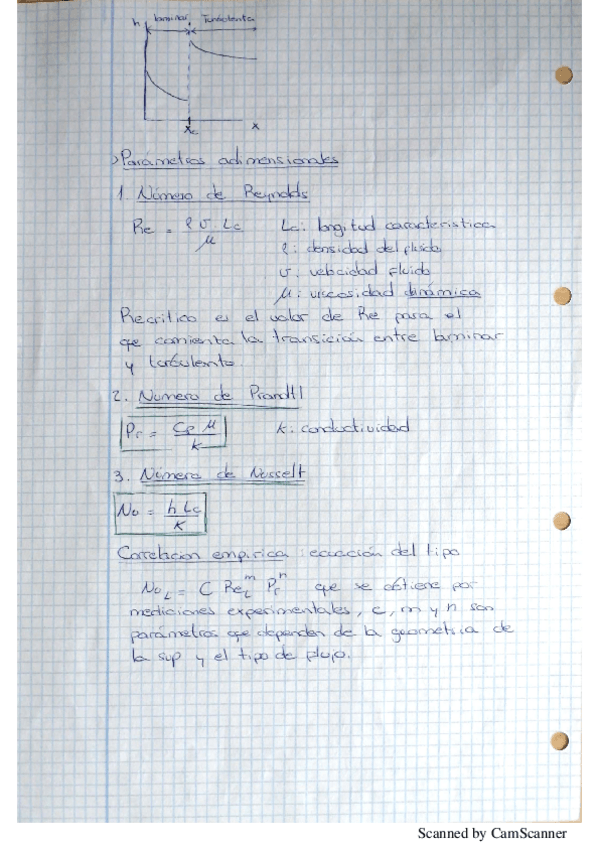 h laminar Turbulento
xc x
> Parámetros adimensionales
1. Número de Reynolds
Re = ρ υ Lc / μ Lc: longitud caracteristica
ρ: densidad del fluido
υ: velocidad fluido
μ: viscosidad dinámica
Recritico es el valor de Re para el
que comienta la transición entre laminar
y turbulento.
2. Numero de Prandtl
Pr = Cp μ / k k: conductividad
3. Número de Nusselt
Nu = h Lc / k
Correlacion empirica : ecuación del tipo
NuL = C ReL^m Pr^n que se obtiene por
mediciones experimentales, c, m y n son
parámetros que dependen de la geometria de
la sup y el tipo de flujo.
Scanned by CamScanner